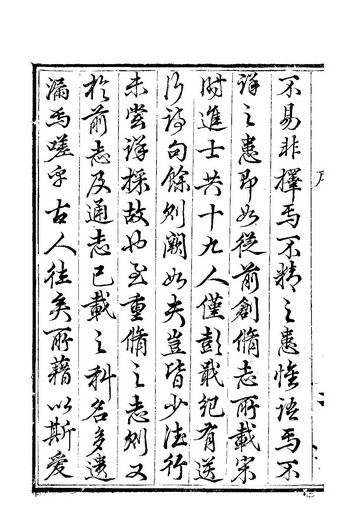 不易非擇焉不精之患惟語焉不
詳之患即如從前創脩志所載宋
時進士共十九人僅彭戢紀有送
行詩句餘則闕如夫豈皆少德行
未嘗詳採故也至重脩之志則又
於前志及通志已載之科名多遺
漏焉嗟乎古人往矣所藉以斯愛
序